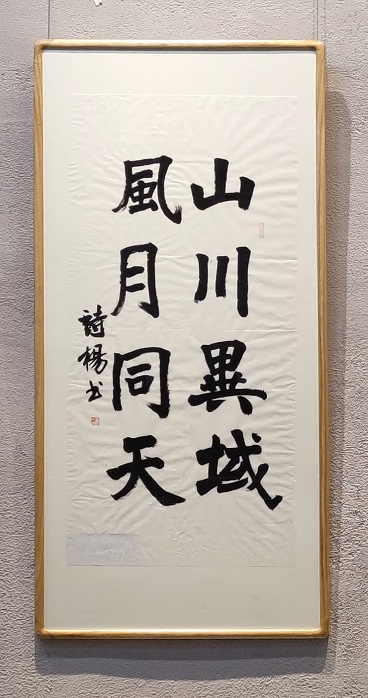 山川異域
風月同天
詩楊书